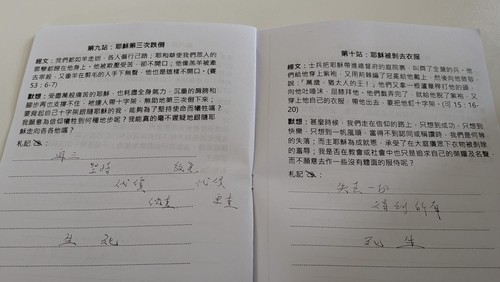 第九站：耶穌第三次跌倒
經文：我們都如羊走迷，各人偏行己路；耶和華使我們眾人的
罪孽都歸在他身上。他被欺壓受苦，卻不開口；他像羔羊被牽
去宰殺，又像羊在剪毛的人手下無聲，他也是這樣不開口。(賽
53：6-7)
默想：受盡萬般痛苦的耶穌，也耗盡全身氣力，沉重的胸膊和
腳步再也支撐不住，被捶人帶十字架，無助地第三次倒下來；
要背起自己十字架跟隨耶穌的我，能夠為了堅持使命而犧牲嗎？
我願意為信仰犧牲到何種地步呢？我能真的毫不遲疑地跟隨耶
穌走向各各他嗎？
札記
再三
堅持 放棄
代價 代價
代
生 死
第十站：耶穌被剝去衣服
經文：士兵把耶穌帶進總督府的庭院裏，叫齊了全營的兵。他
們給他穿上紫袍，又用荊棘編了冠冕給他戴上，然後向他致敬，
說：「萬歲，猶太人的王！」他們又拿一根蘆葦桿打他的頭，
向他吐唾沫，屈膝拜他。他們戲弄完了，就給他脫了紫袍，又
穿上他自己的衣服，帶他出去，要把他釘十字架。(可 15：16-
20)
默想：甚麼時候，我們走在信仰的路上，只想到成功，只想到
快樂，只想到一帆風順，當得不到認同或稱讚時，我們是何等
的失落；而主耶穌為成就恩，承受了在大庭廣眾下衣物被剝除
的羞辱；我是否在教會或社會中也只是追求自己的榮耀及名聲，
而不願意去作一些沒有體面的服侍呢？
札記
失去一切
得到所有
死 生